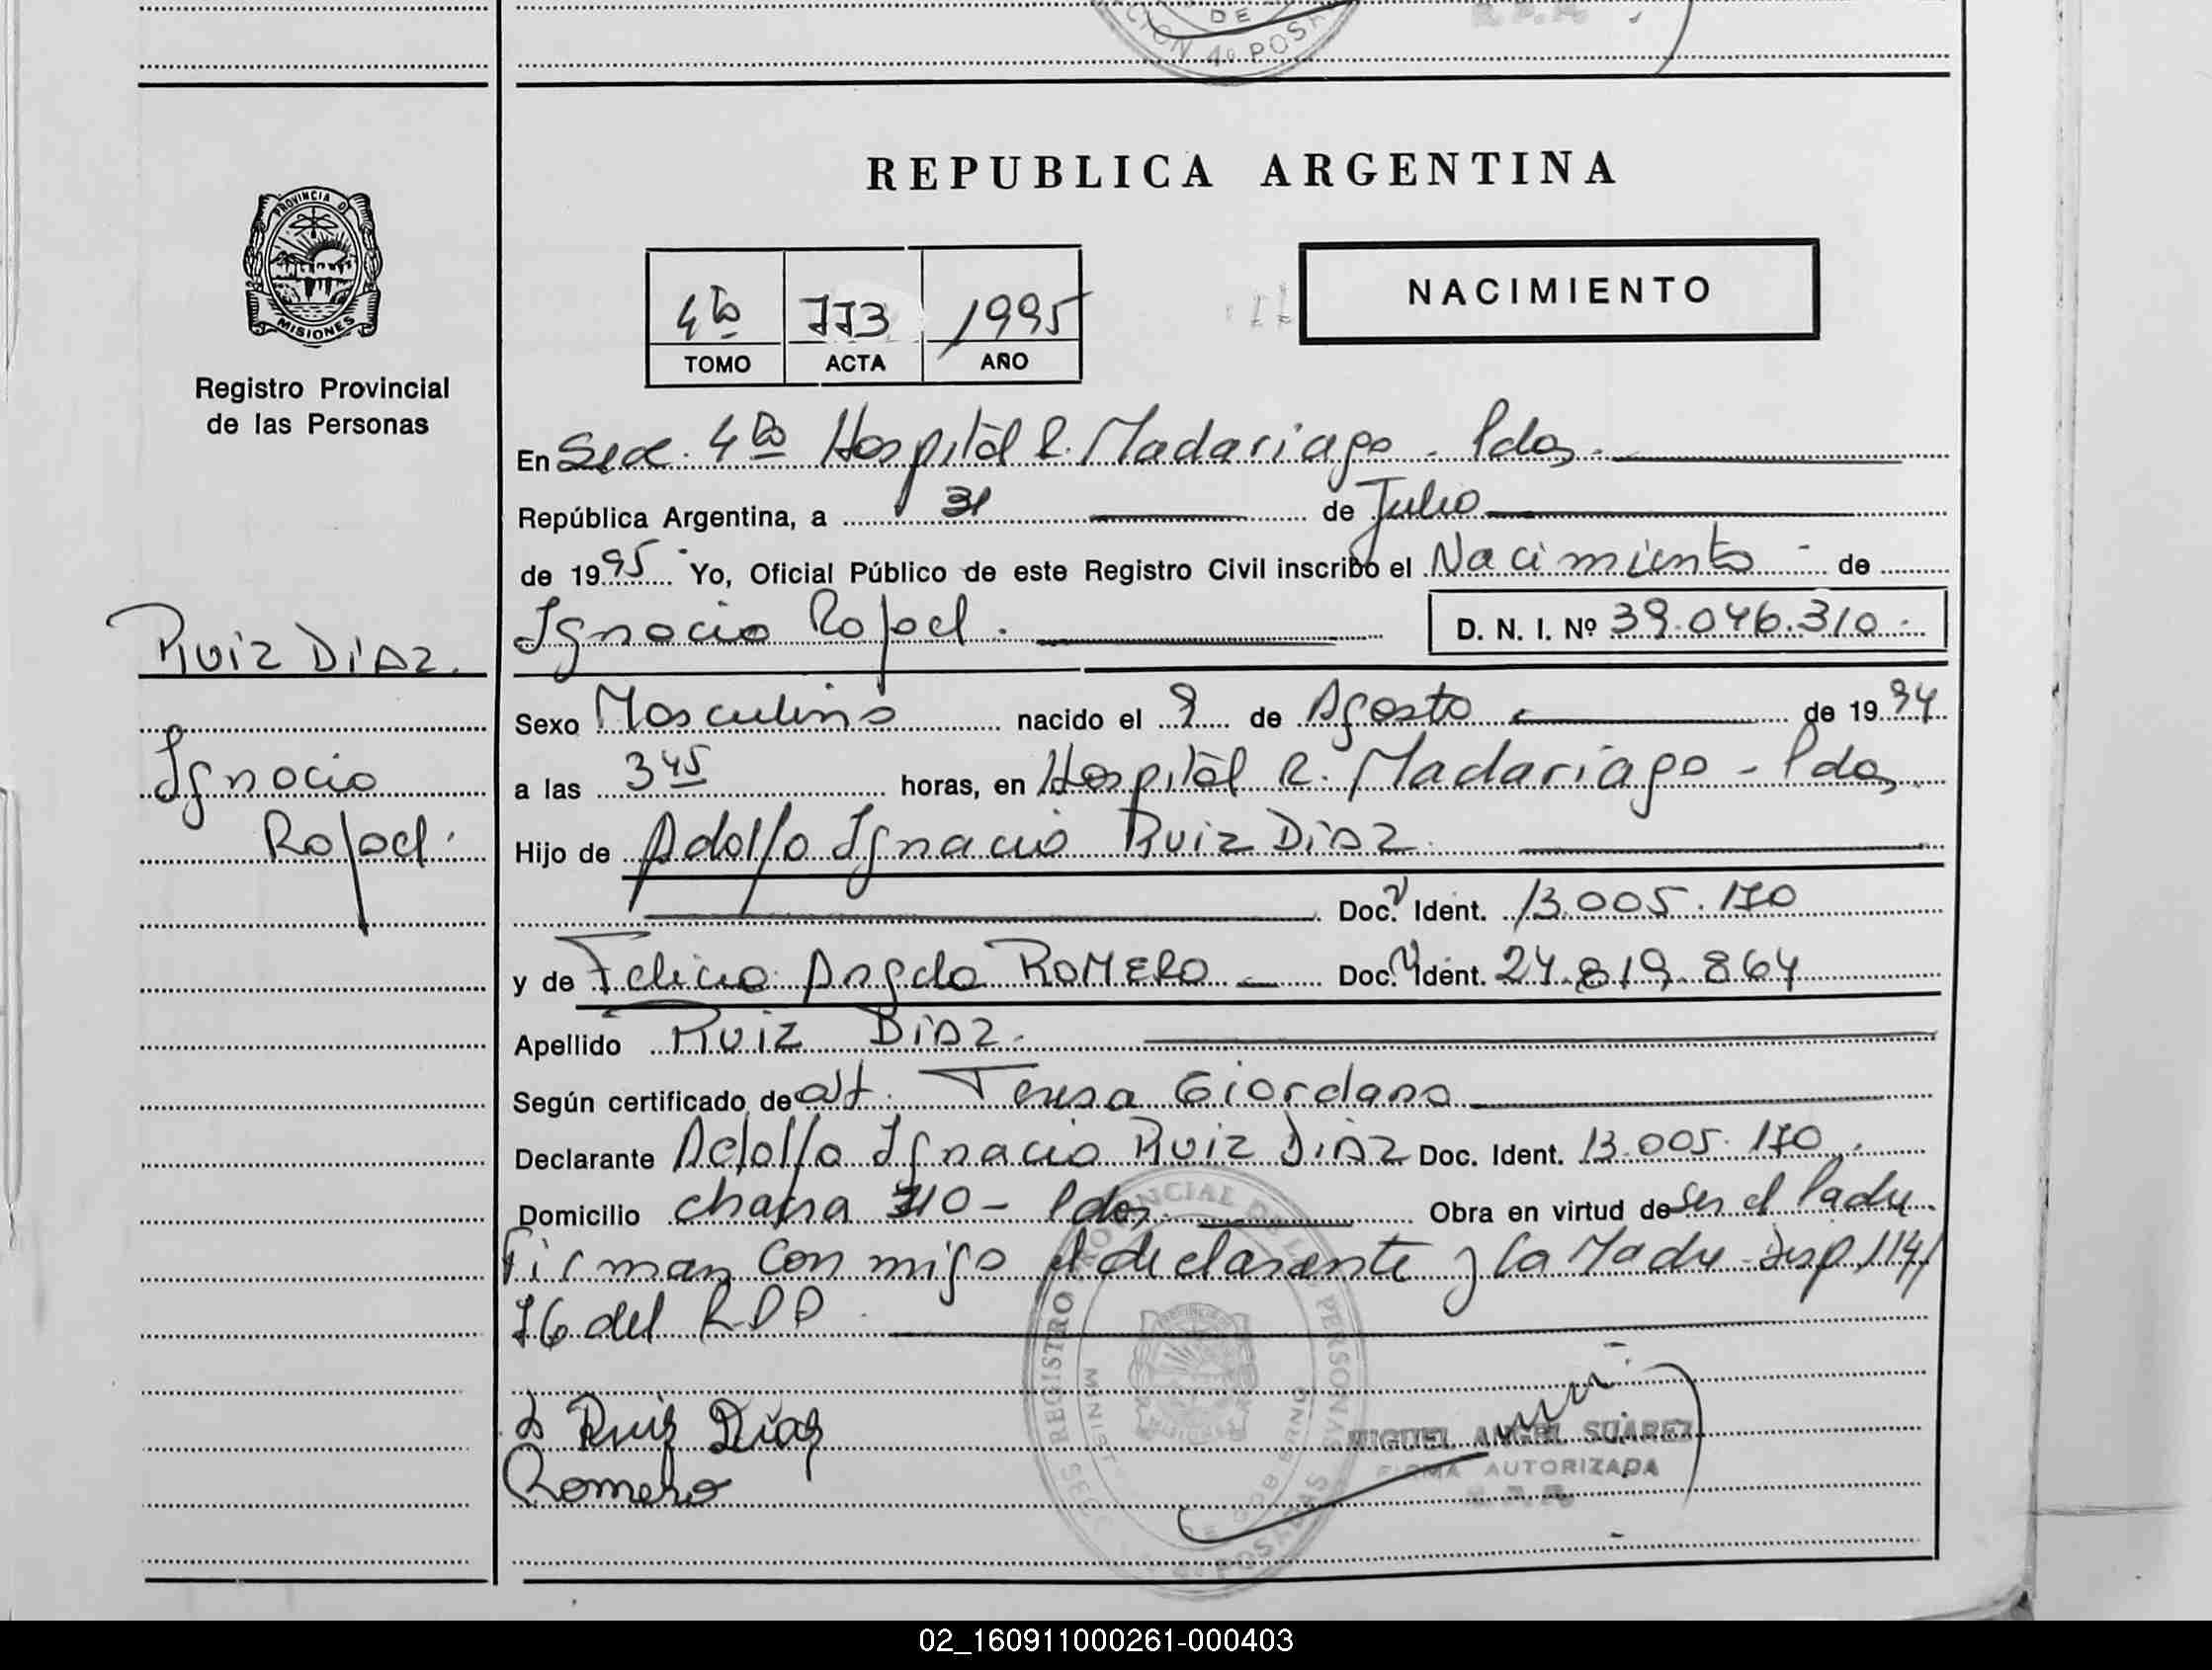 DE
CION 4º POS
REPUBLICA ARGENTINA
PROVINCIA DE
MISIONES
Registro Provincial
de las Personas
4to 773 1995
TOMO ACTA AÑO
NACIMIENTO
En Sec. 4ta Hospital R. Madariaga - Pdas.
República Argentina, a 31 de Julio
de 1995 Yo, Oficial Público de este Registro Civil inscribo el Nacimiento - de
Ignacio Rafael. D. N. I. Nº 39.046.310.-
RUIZ DIAZ.
Ignacio
Rafael.
Sexo Masculino nacido el 9 de Agosto de 1994
a las 3 45 horas, en Hospital R. Madariaga - Pdas.
Hijo de Adolfo Ignacio RUIZ DIAZ
Doc. Ident. 13.005.170
y de Felicia Angela ROMERO Doc. Ident. 24.819.864
Apellido RUIZ DIAZ.
Según certificado de Teresa Giordano
Declarante Adolfo Ignacio RUIZ DIAZ Doc. Ident. 13.005.170.
Domicilio chacra - Pdas. Obra en virtud de ser el Padre.
Firman con migo el declarante y la Madre Disp. 114/
76 del RPP
REGISTRO PROVINCIAL DE LAS PERSONAS
A Ruiz Diaz
Romero
MIGUEL ANGEL SUAREZ
FIRMA AUTORIZADA
02_160911000261-000403